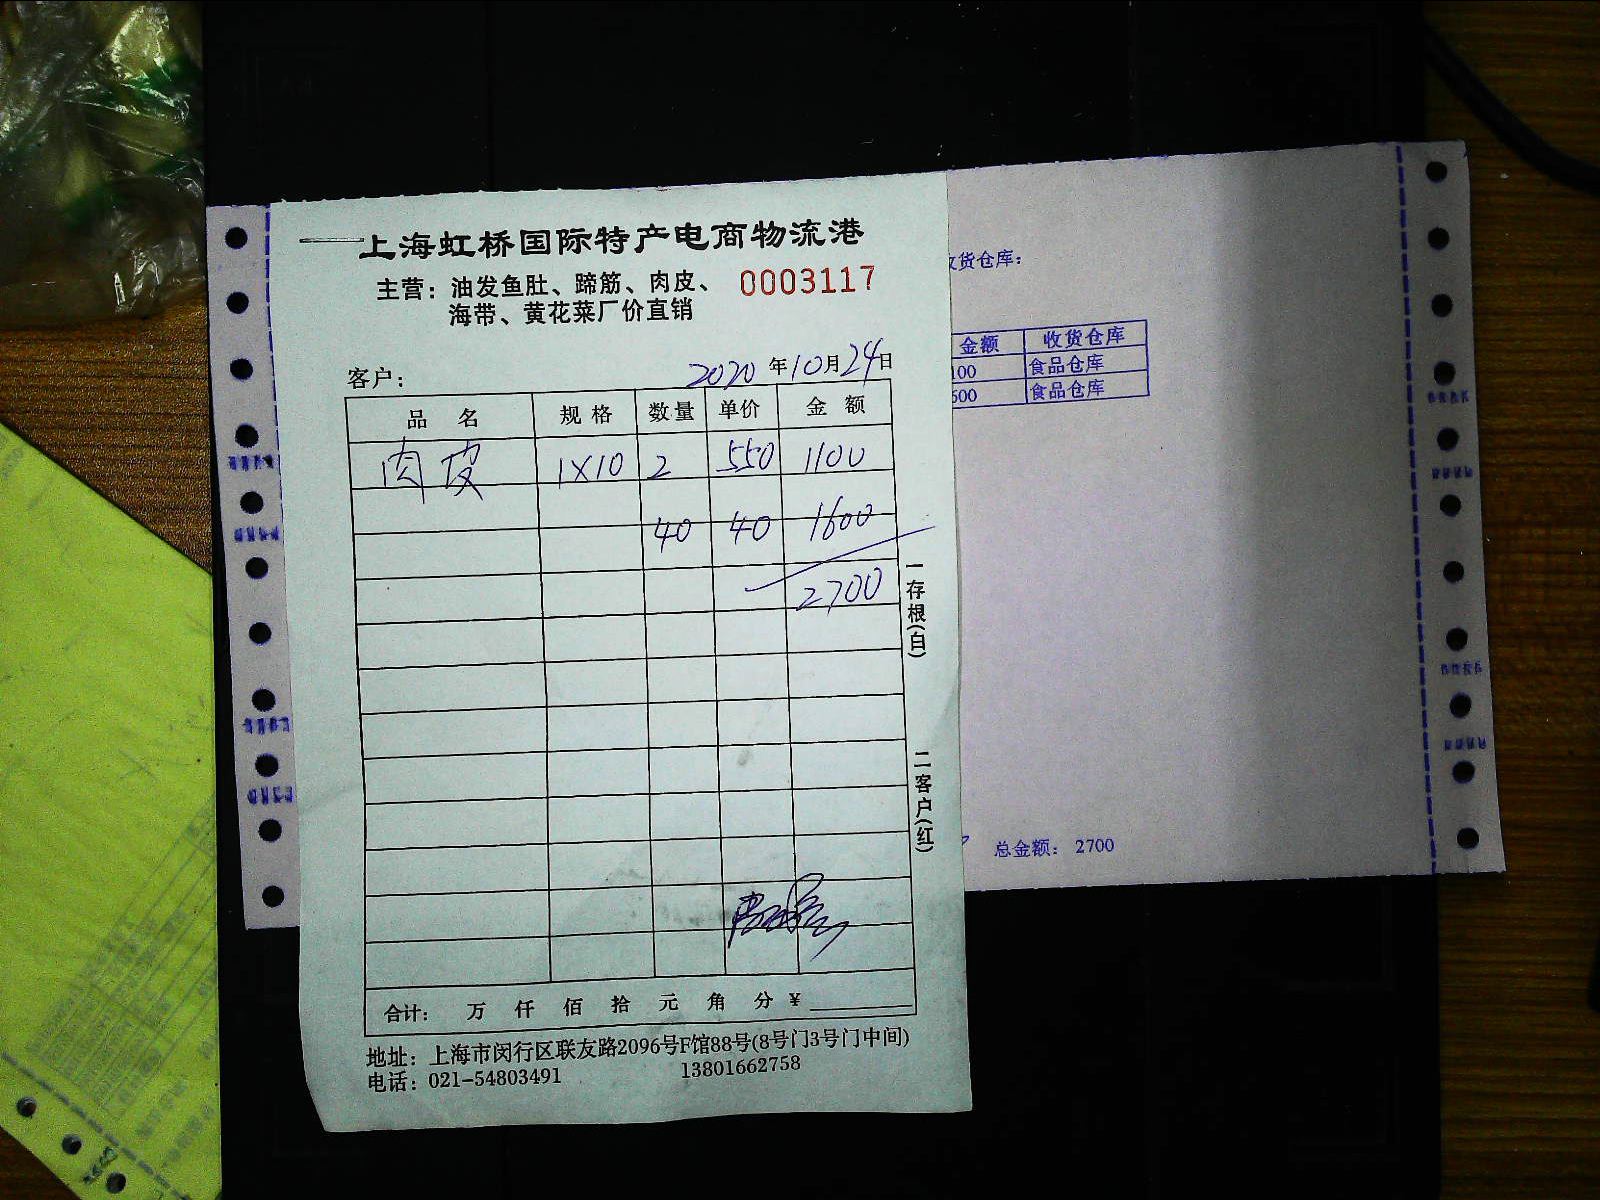 上海虹桥国际特产电商物流港
主营：油发鱼肚、蹄筋、肉皮、
海带、黄花菜厂价直销
0003117
客户：
2020年10月24日
品名 规格 数量 单价 金额
肉皮 1×10 2 550 1100
40 40 1600
2700
一存根(白)
二客户(红)
合计： 万 仟 佰 拾 元 角 分 ¥
地址：上海市闵行区联友路2096号F馆88号(8号门3号门中间)
电话：021-54803491 13801662758
收货仓库：
金额 收货仓库
100 食品仓库
600 食品仓库
总金额： 2700